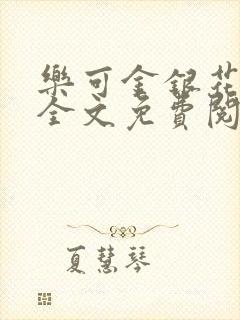 樂可金銀花
全文免費閱
夏慧琴